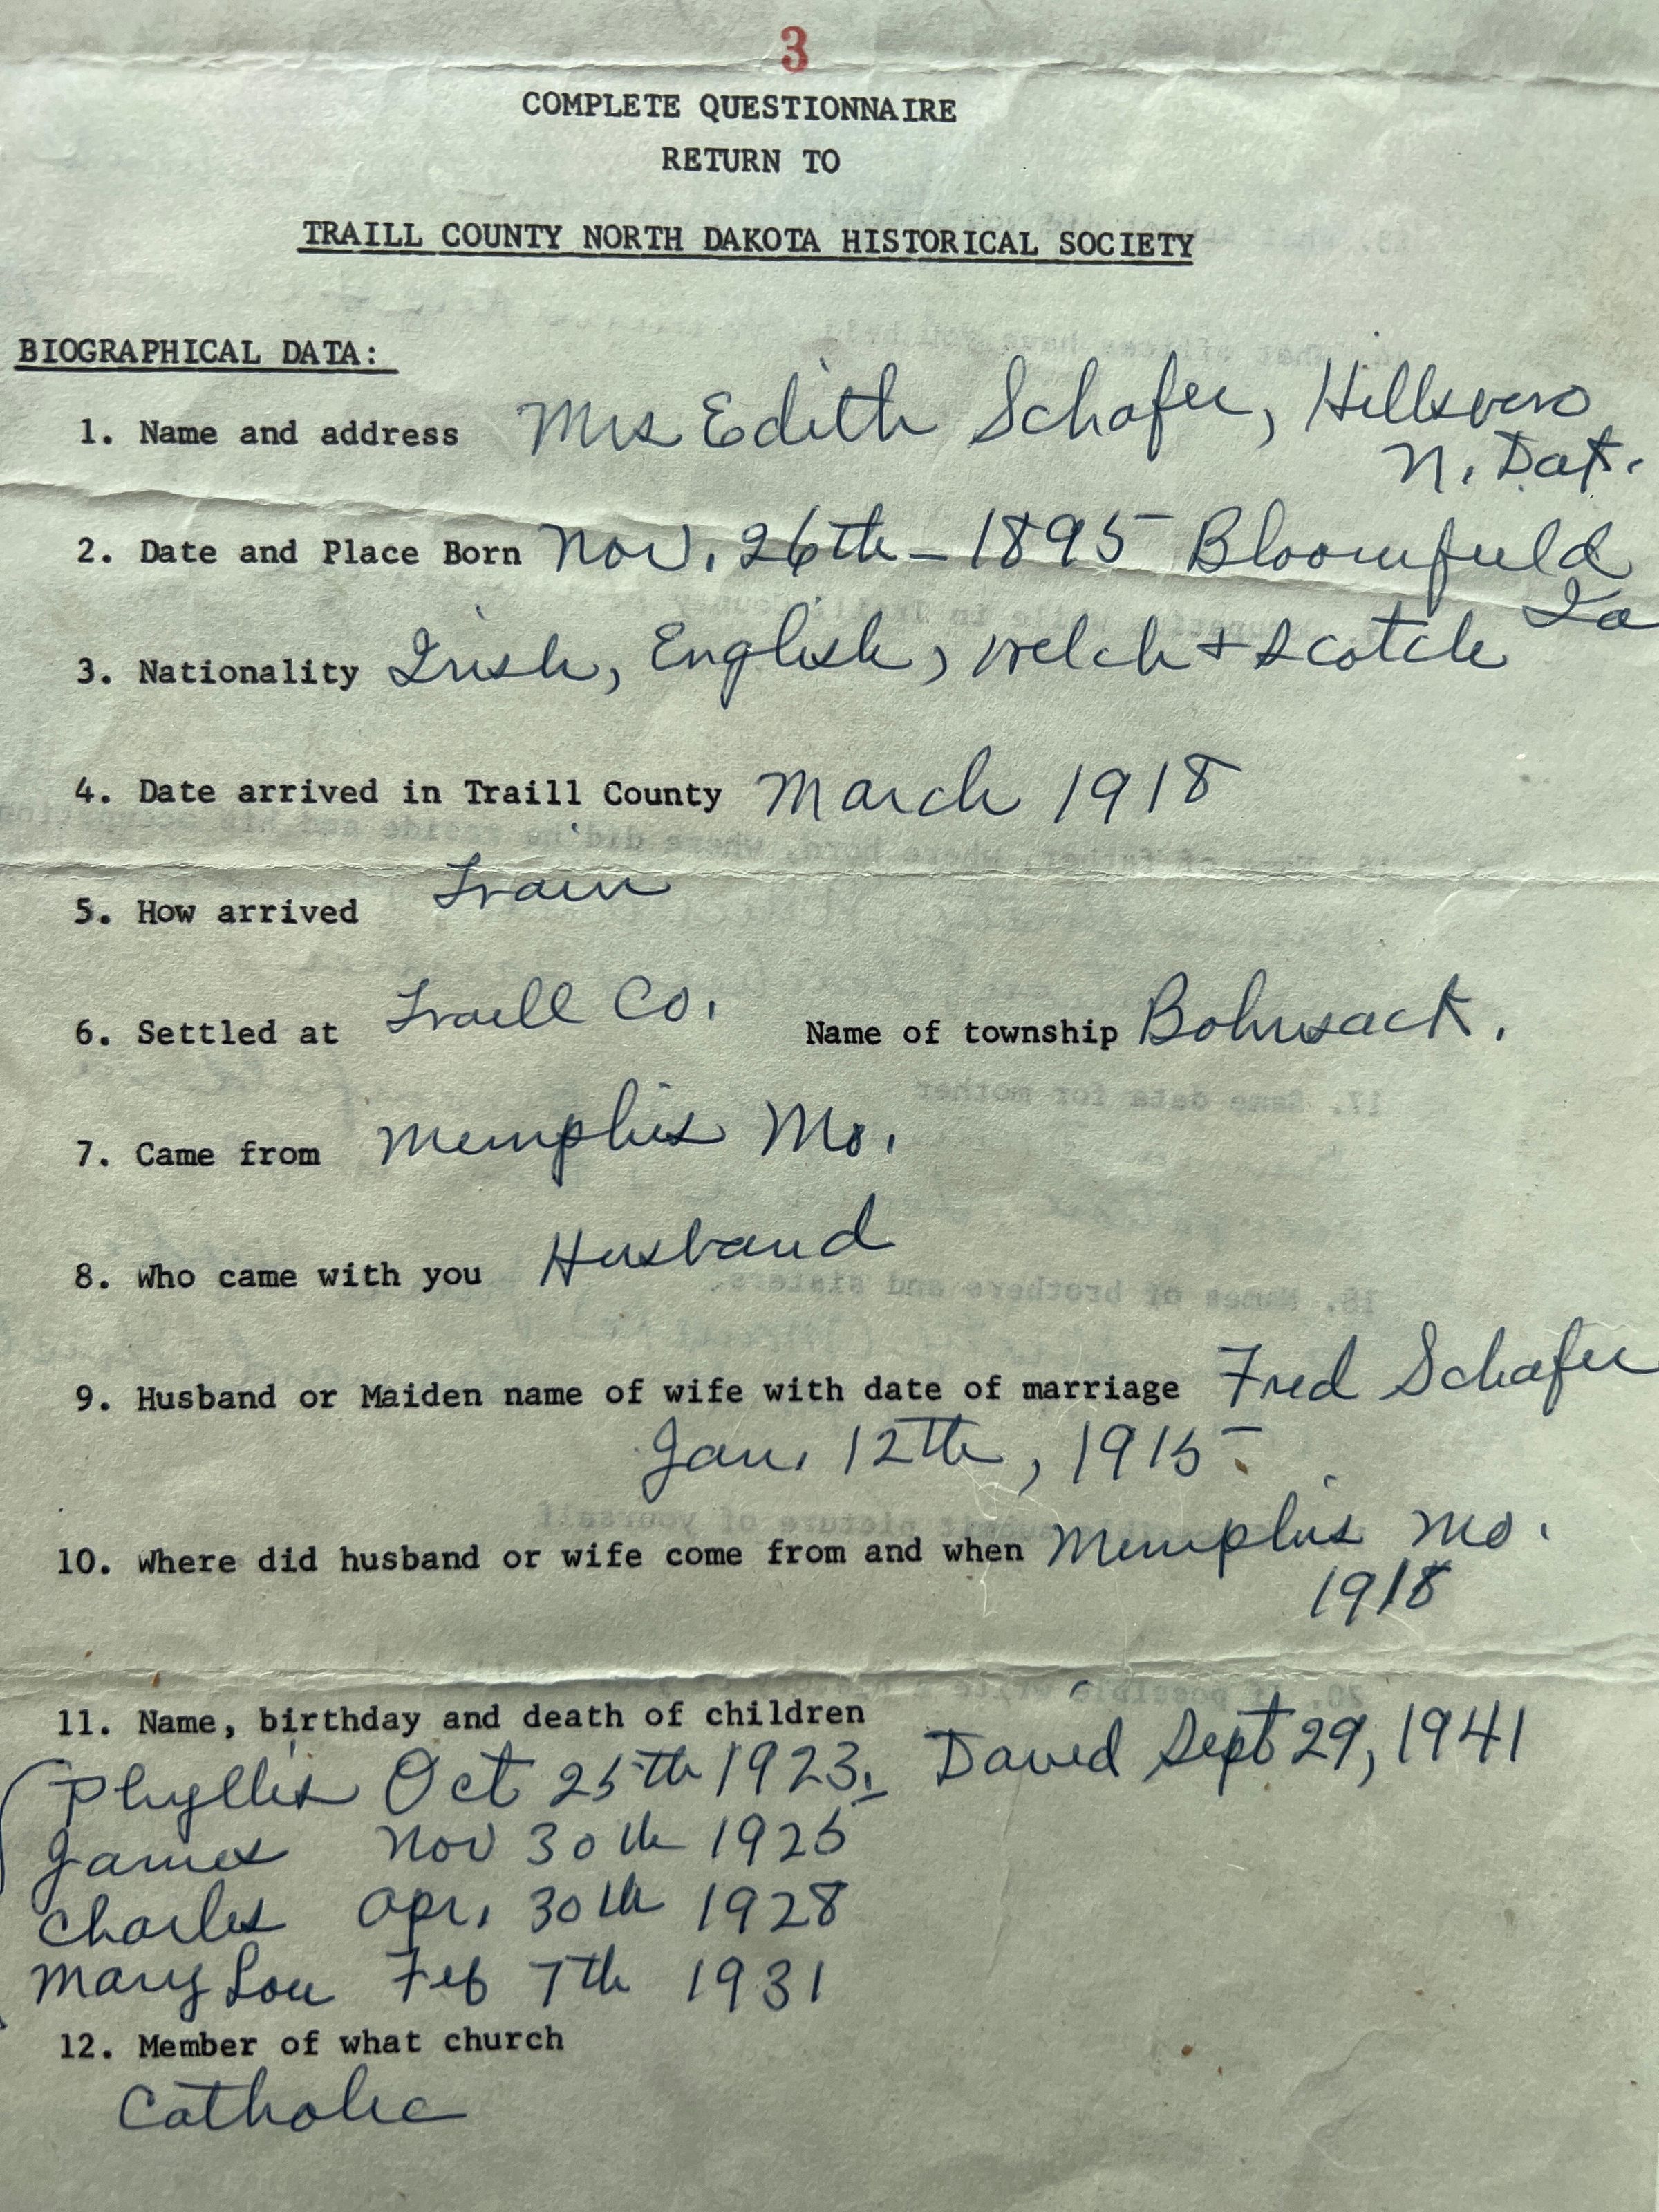 3
COMPLETE QUESTIONNAIRE
RETURN TO
TRAILL COUNTY NORTH DAKOTA HISTORICAL SOCIETY
BIOGRAPHICAL DATA:
1. Name and address Mrs Edith Schafer, Hillsboro
N. Dak.
2. Date and Place Born Nov. 26th - 1895 Bloomfield
Ia
3. Nationality Irish, English, Welch + Scotch
4. Date arrived in Traill County March 1918
5. How arrived Train
6. Settled at Traill Co. Name of township Bohnsack.
7. Came from Memphis Mo.
8. Who came with you Husband
9. Husband or Maiden name of wife with date of marriage Fred Schafer
Jan. 12th, 1915
10. Where did husband or wife come from and when Memphis Mo.
1918
11. Name, birthday and death of children
Phyllis Oct 25th 1923. David Sept 29, 1941
James Nov 30th 1925
Charles Apr. 30th 1928
Mary Lou Feb 7th 1931
12. Member of what church
Catholic